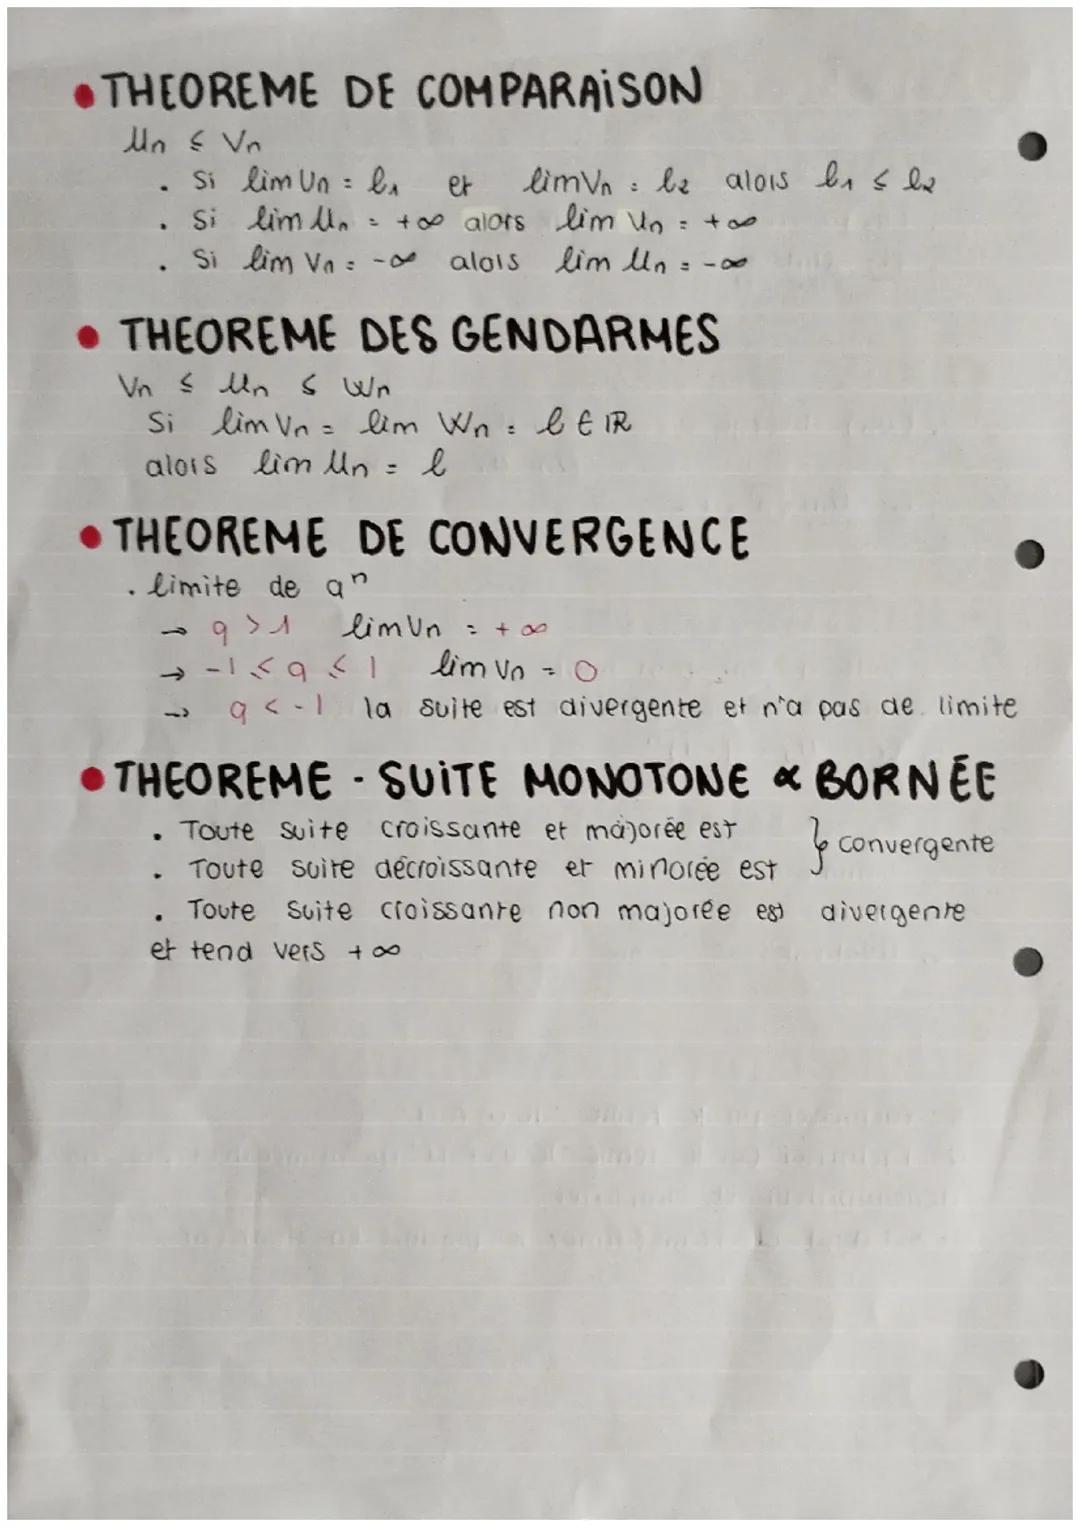 • THEOREME DE COMPARAiSON
Un ≤ Vn
. Si lim Un = l1 et lim Vn = l2 alors l1 ≤ l2
. Si lim Un = +∞ alors lim Vn = +∞
. Si lim Vn = -∞ alors lim Un = -∞
• THEOREME DES GENDARMES
Vn ≤ Un ≤ Wn
Si lim Vn = lim Wn = l ∈ IR
alors lim Un = l
• THEOREME DE CONVERGENCE
. limite de qn
→ q > 1 lim Vn = +∞
→ -1 < q < 1 lim Vn = 0
→ q < -1 la suite est divergente et n'a pas de limite
• THEOREME - SUiTE MONOTONE & BORNÉE
. Toute suite croissante et majorée est } convergente
. Toute suite décroissante et minorée est
. Toute suite croissante non majorée est divergente
et tend vers +∞